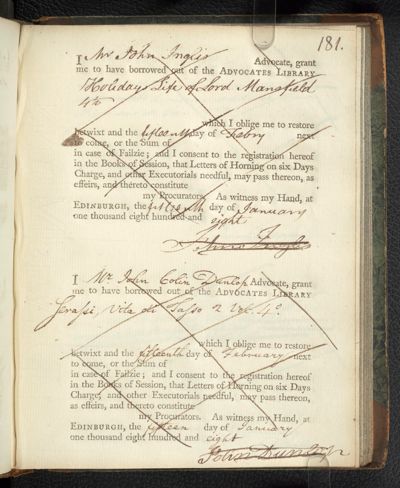 181.
I Mr John Inglis Advocate, grant
me to have borrowed out of the ADVOCATES LIBRARY
Holiday Life of Lord Mansfield
4to
which I oblige me to restore
betwixt and the fifteenth day of Febry next
to come, or the Sum of
in case of Failzie; and I consent to the registration hereof
in the Books of Session, that Letters of Horning on six Days
Charge, and other Executorials needful, may pass thereon, as
effeirs, and thereto constitute
my Procurators. As witness my Hand, at
EDINBURGH, the fifteenth day of January
one thousand eight hundred and eight
John Inglis
I Mr. John Colin Dunlop Advocate, grant
me to have borrowed out of the ADVOCATES LIBRARY
Serassi, Vita di Tasso 2 Vol. 4o.
which I oblige me to restore
betwixt and the fifteenth day of February next
to come, or the Sum of
in case of Failzie; and I consent to the registration hereof
in the Books of Session, that Letters of Horning on six Days
Charge, and other Executorials needful, may pass thereon,
as effeirs, and thereto constitute
my Procurators. As witness my Hand, at
EDINBURGH, the fifteen day of January
one thousand eight hundred and eight
John Dunlop